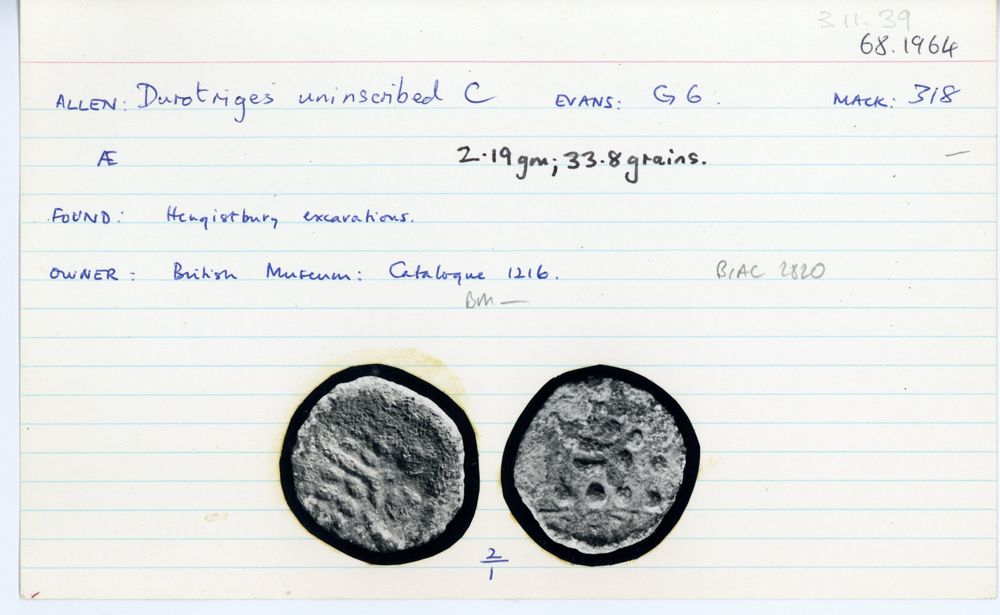 3.11.39
68.1964
ALLEN: Durotriges uninscribed C EVANS: G 6. MACK: 318
Æ 2.19gm; 33.8grains. —
FOUND: Hengistbury excavations.
OWNER: British Museum: Catalogue 1216. B/AC 2820
BM —
2
1